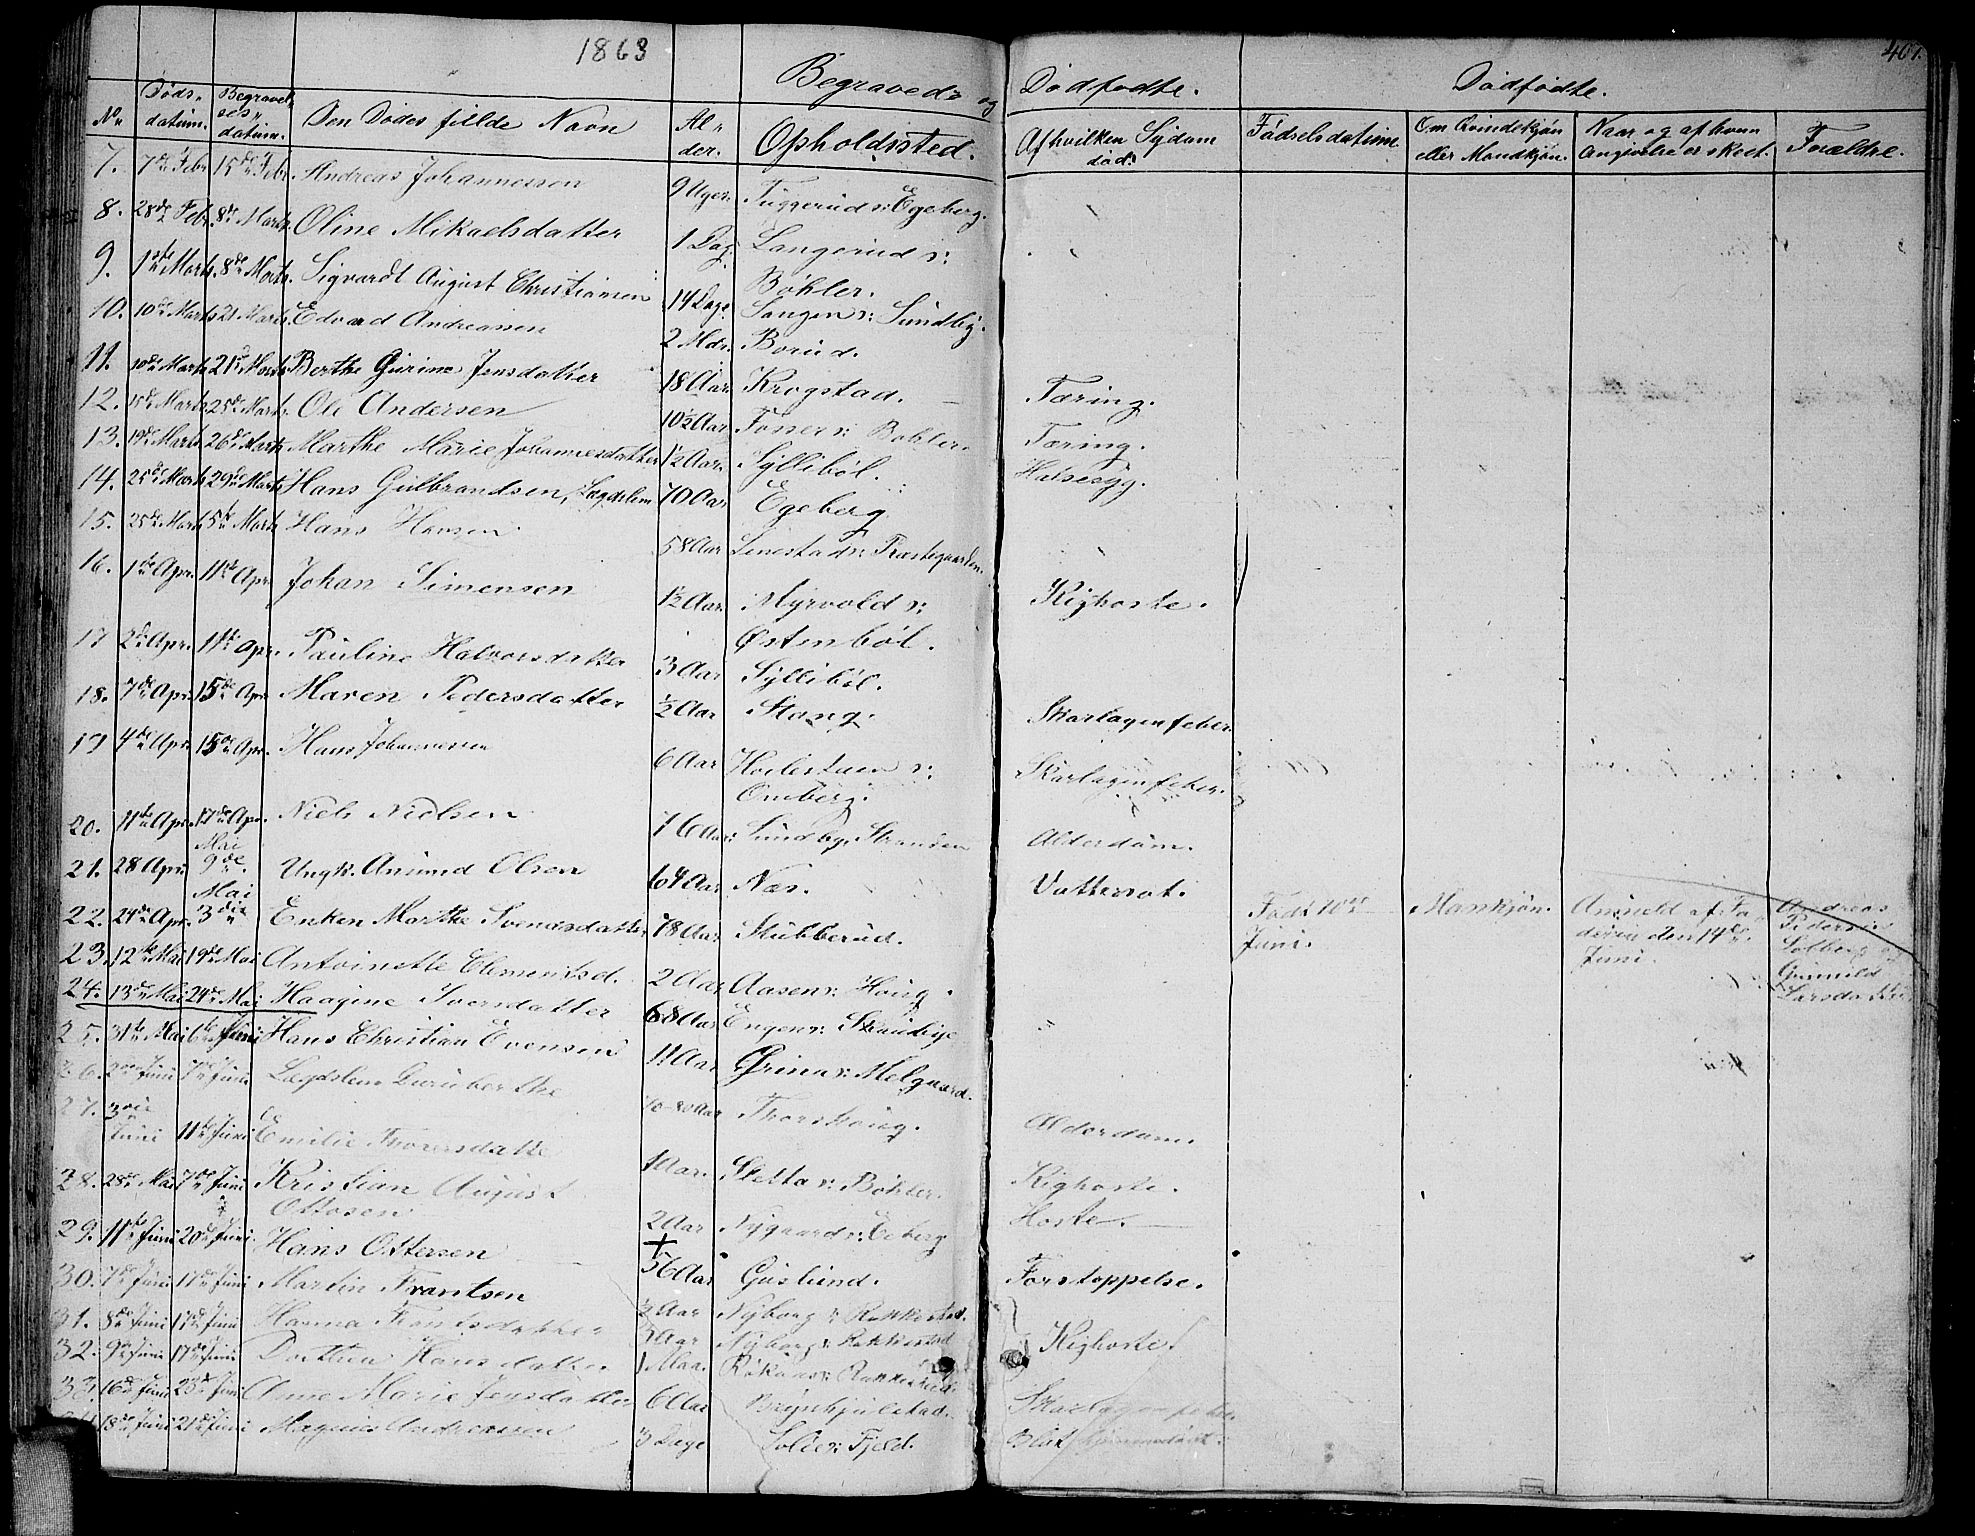 1863
407.
Begravede og Dödfödte. Dödfödte.
No. Döds-datum. Begravel-ses-datum. Den Dödes fulde Navn Al-der. Opholdssted. Af hvilken Sygdom död. Födselsdatum Om Qvindekjön eller Mandkjön. Naar og af hvem Angivelse er skeet. Forældre.
7. 7de Febr 15de Febr. Andreas Johannessen 9 Uger. Tuggerud v: Egeberg.
8. 28de Febr. 8de Marts. Oline Mikaelsdatter 1 Dag. Langerud v: Böhler.
9. 1ste Marts. 8de Marts. Sigvardt August Christiansen 14 Dage Langen v: Sundby.
10. 10de Marts 21 Marts. Edvard Andreassen 2 Mdr. Borud.
11. 10de Marts 21de Marts. Berthe Gurine Jensdatter 18 Aar Krogstad. Tæring.
12. 15de Marts 25de Marts. Ole Andersen 10½ Aar Toner v: Bohler. Tæring.
13. 19de Marts 26de Marts Marthe Marie Johannesdatter 1½ Aar. Syllibøl. Halsesyg.
14. 25de Marts 29de Marts Hans Gulbrandsen, Lægdslem 70 Aar Egeberg
15. 25de Marts 5te Marts Hans Hansen 58 Aar Linestad v: Præstegaarden.
16. 1ste Apr. 11te Apr. Johan Simensen 1½ Aar. Myrvold v: Østenböl. Kighoste.
17 2den Apr. 11te Apr. Pauline Halvorsdatter 3 Aar Syllibøl.
18. 7de Apr. 15de Apr Maren Pedersdatter ½ Aar Stang. Skarlagensfeber
19 4de Apr. 15de Apr. Hans Johannessen 6 Aar v: Omberg. Skarlagenfeber.
20. 11te Apr. 17de Apr. Niels Nielsen 76 Aar: Sundby, Stranden Alderdom.
21. 28 Apr. 9de Mai Ungk. Amund Olsen 64 Aar Næs. Vattersot.
22. 24de Apr. 3die Mai Enken Marthe Svendsdatter 78 Aar Stubberud. Födt 10de Juni. Mankjön. Anmeldt af Faderen den 14de Juni. Andreas Pedersen Solberg og Gunnild Larsdatter
23. 12te Mai 19de Mai Antoinette Clementsd. 2 Aar Aasen v: Houg.
24. 13de Mai 24de Mai Haagine Iversdatter 68 Aar Engen v:
25. 31te Mai 6te Juni Hans Christian Evensen 11 Aar Grina v: Melgaard.
26. 2den Juni 7de Juni Lægdslem Guruberthe 70-80 Aar Thorshoug. Alderdom.
27. 3die Juni 11te Juni Emilie Thorersdatte 1 Aar. Sletta v: Böhler. Kighoste.
28. 28de Mai 7de Juni Kristian August Ottosen 2 Aar Nygaard v: Eeberg Hoste.
29. 11te Juni 20de Juni. Hans Ottersen 56 Aar Guslund. Forstoppelse.
30. 7de Juni 17de Juni Martin Frantsen ½ Aar Nyborg v: Rakkestad.
31. 8de Juni 17de Juni Hanna Frantsdatter 3 Aar Nyborg v: Rakkestad Kighoste
32. 9de Juni 17de Juni Dorthea Hansdatter 1 Maa.
33. 16de Juni 23de Juni Anne Marie Jensdatter 6 Aar Brynhjulstad. Skarlagenfeber
34 18de Juni 21de Juni Magnus Andreassen 3 Dage v: Fjeld.